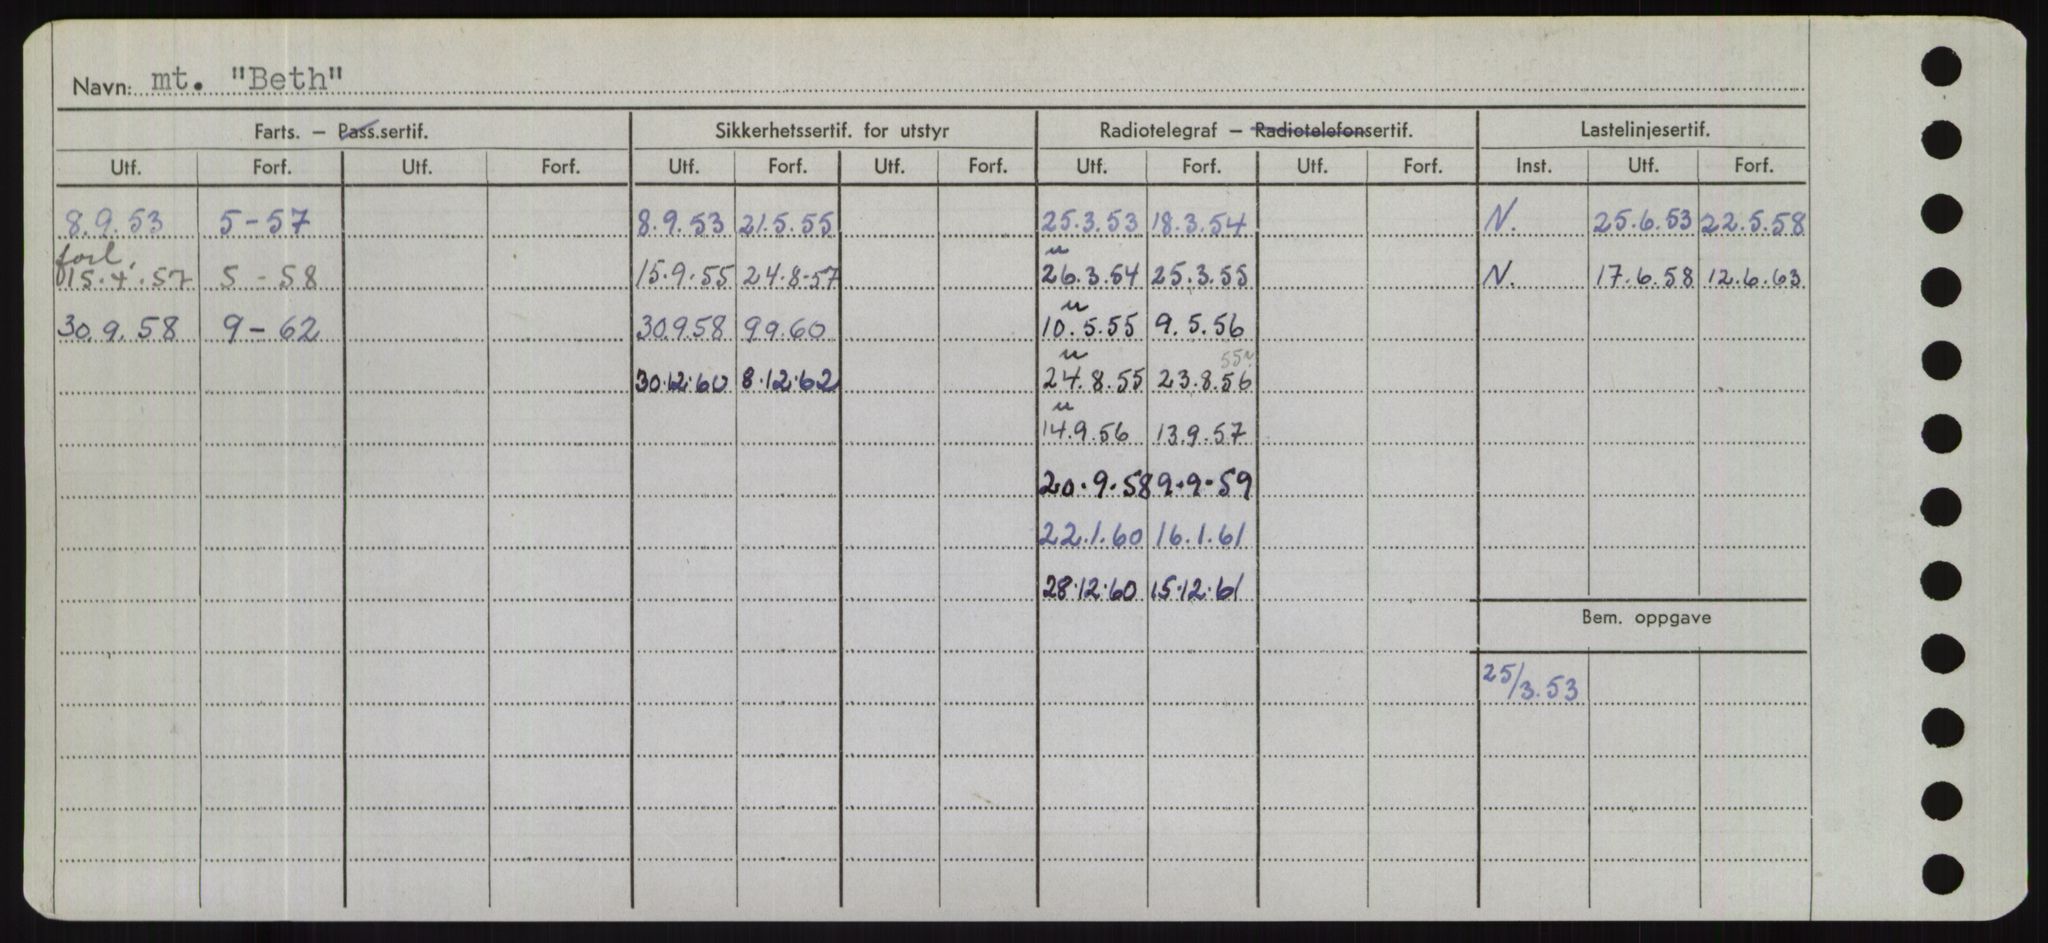 Navn: mt. "Beth"
Farts. – Pass.sertif. Sikkerhetssertif. for utstyr Radiotelegraf – Radiotelefonsertif. Lastelinjesertif.
Utf. Forf. Utf. Forf. Utf. Forf. Utf. Forf. Utf. Forf. Utf. Forf. Inst. Utf. Forf.
8.9.53 5-57 8.9.53 21.5.55 25.3.53 18.3.54 N. 25.6.53 22.5.58
forl.
15.4.57 5-58 15.9.55 24.8-57 26.3.54 25.3.55 N. 17.6.58 12.6.63
30.9.58 9-62 30.9.58 9.9.60 10.5.55 9.5.56
55
30.12.60 8.12.62 24.8.55 23.8.56
14.9.56 13.9.57
20.9.58 9.9.59
22.1.60 16.1.61
28.12.60 15.12.61
Bem. oppgave
25/3.53